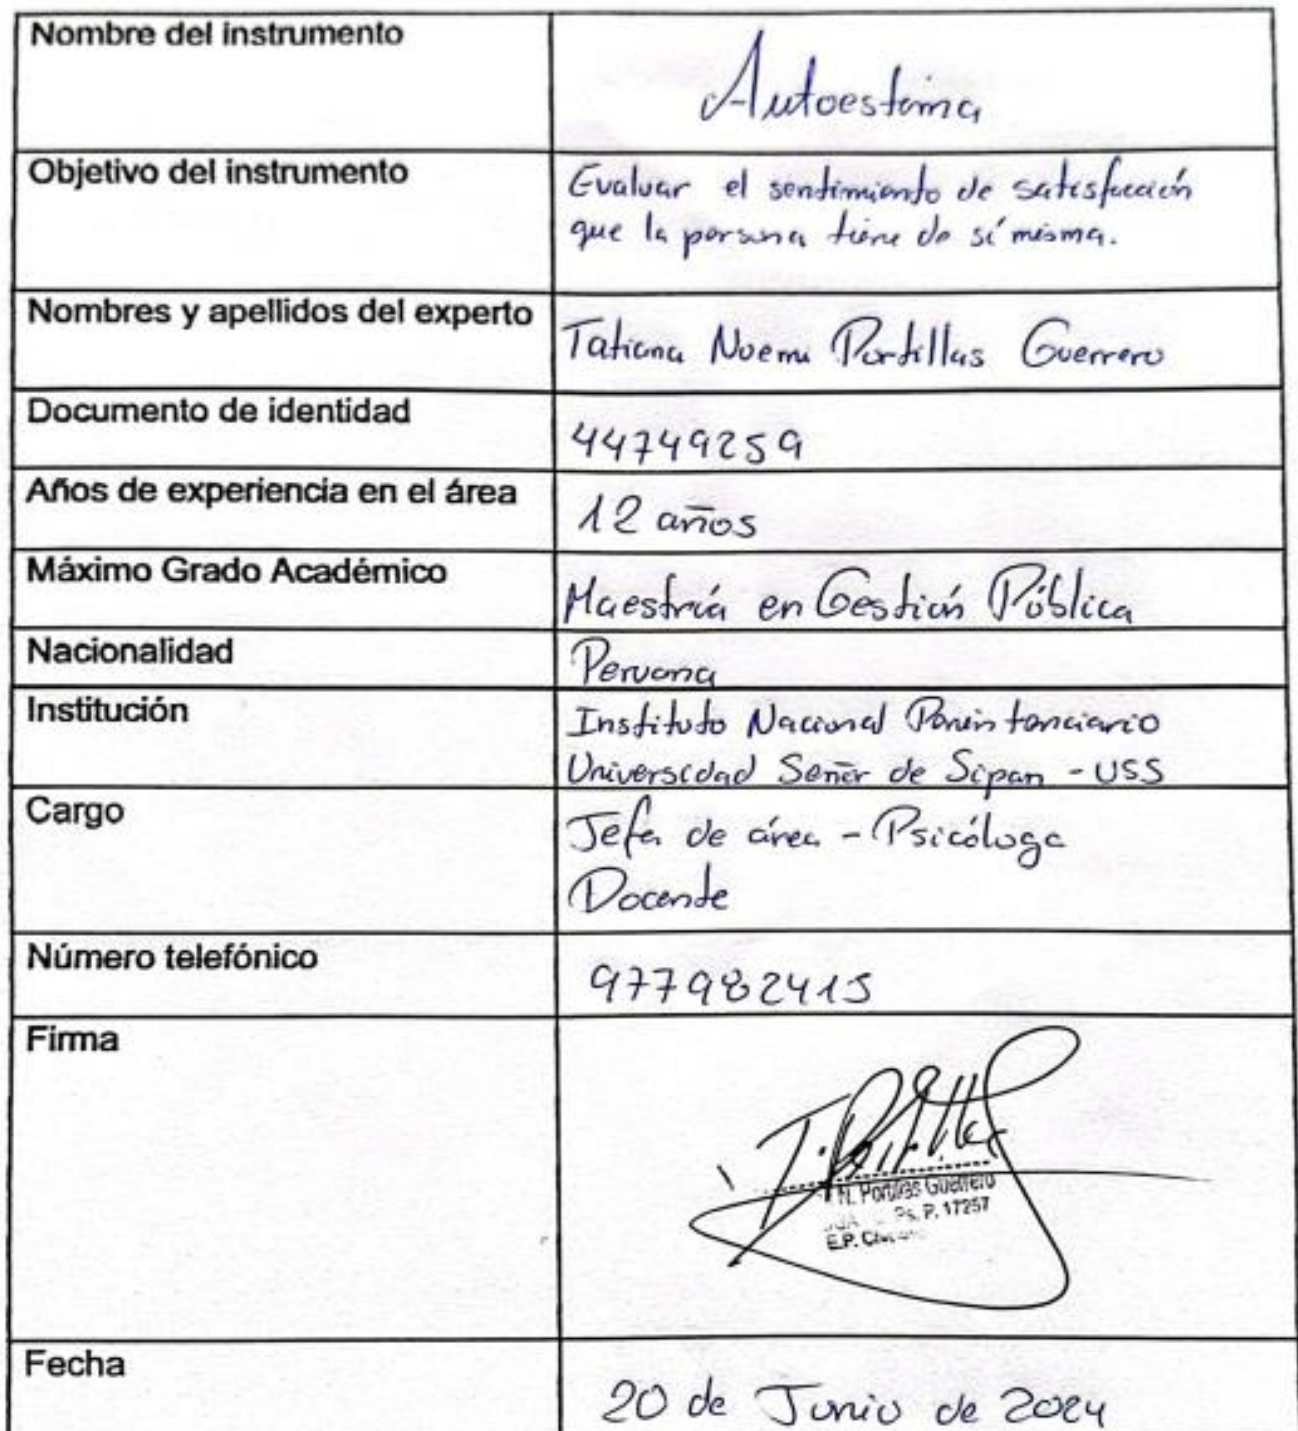 Nombre del instrumento
Autoestima
Objetivo del instrumento
Evaluar el sentimiento de satisfacción
que la persona tiene de sí misma.
Nombres y apellidos del experto
Tatiana Noemi Portillas Guerrero
Documento de identidad
44749259
Años de experiencia en el área
12 años
Máximo Grado Académico
Maestría en Gestión Pública
Nacionalidad
Peruana
Institución
Instituto Nacional Penintenciario
Universidad Señor de Sipan - USS
Cargo
Jefa de área - Psicóloga
Docente
Número telefónico
977982415
Firma
N. Portillas Guerrero
Ps. P. 17257
E.P.
Fecha
20 de Junio de 2024